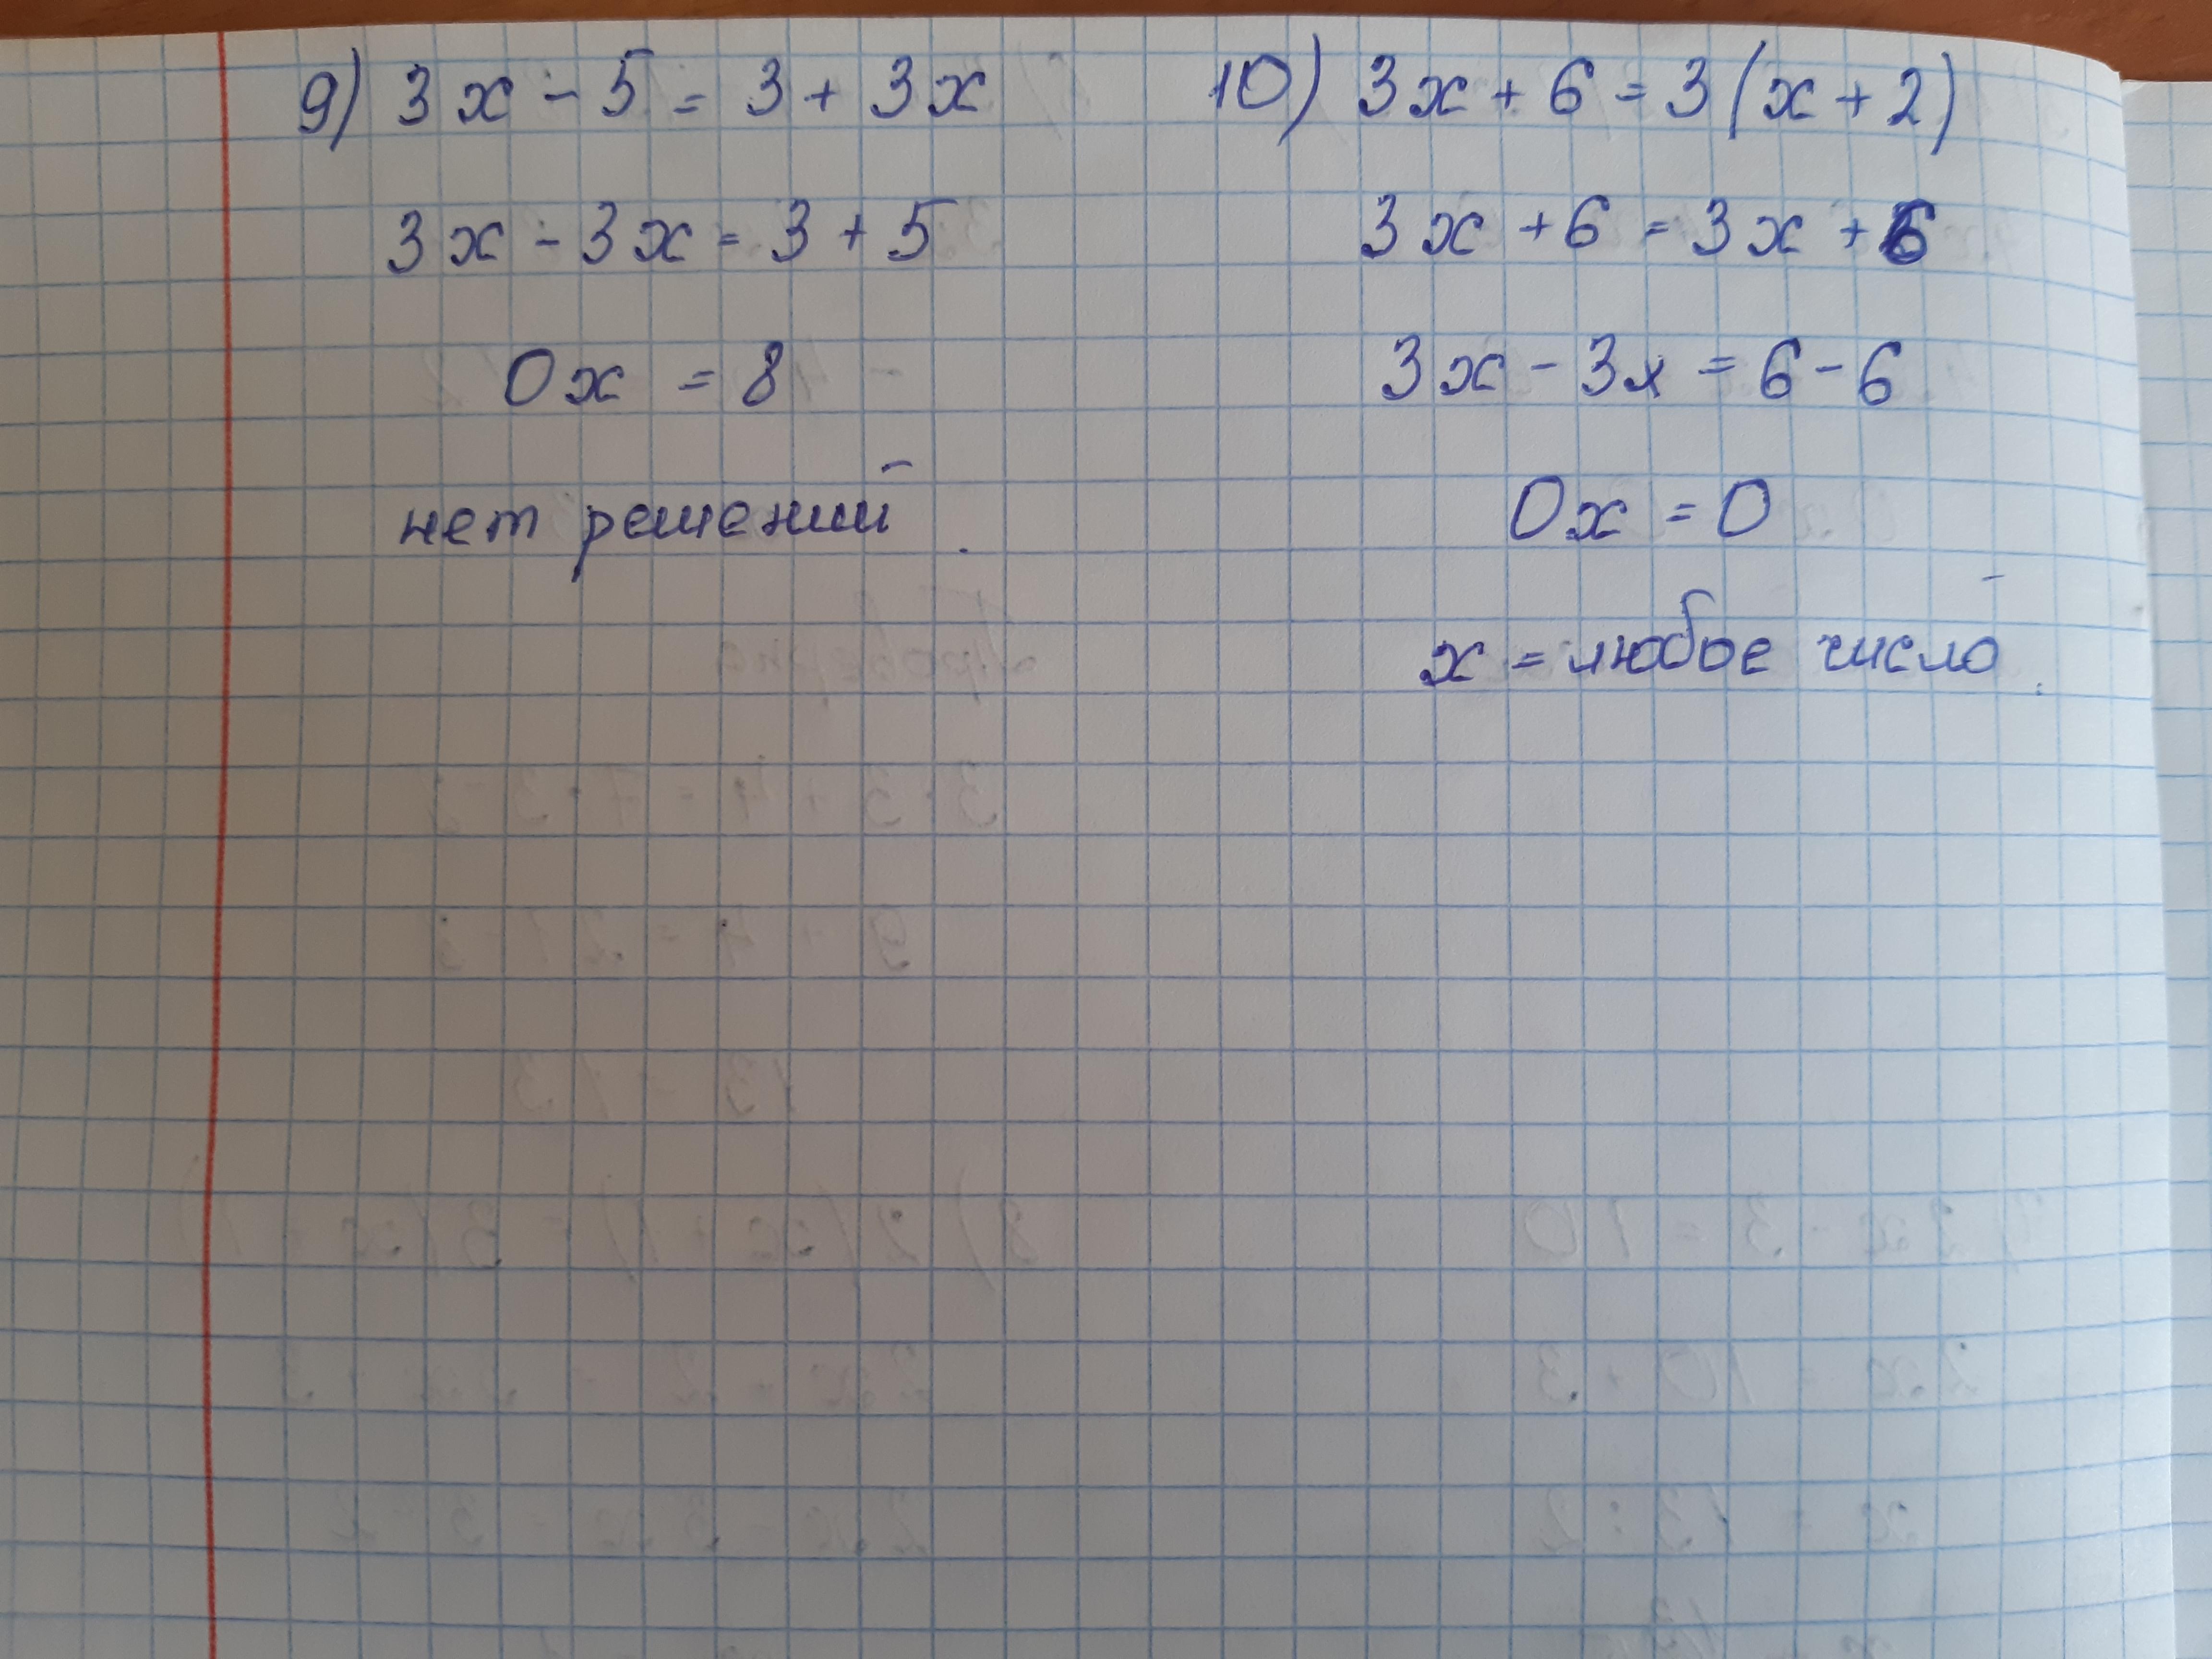 9) 3x - 5 = 3 + 3x
3x - 3x = 3 + 5
0x = 8
нет решений.
10) 3x + 6 = 3(x + 2)
3x + 6 = 3x + 6
3x - 3x = 6 - 6
0x = 0
x = любое число.